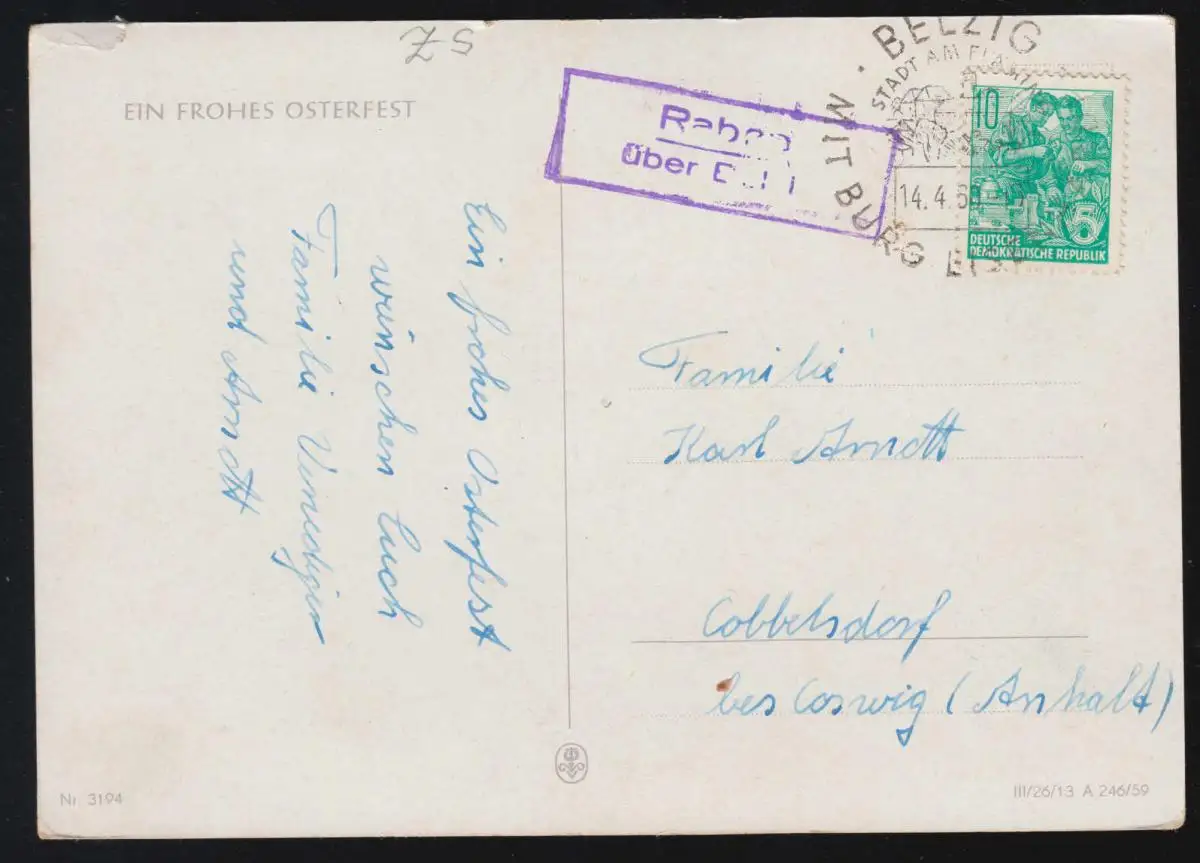 SZ
EIN FROHES OSTERFEST
Ein frohes Osterfest
wünschen Euch
Familie
und Arndt
Raben
über
BELZIG
STADT AM
MIT BURG
14.4.60
10
5
DEUTSCHE
DEMOKRATISCHE REPUBLIK
Familie
Karl Arndt
Cobbelsdorf
bei Coswig (Anhalt)
Nr. 3194
III/26/13 A 246/59